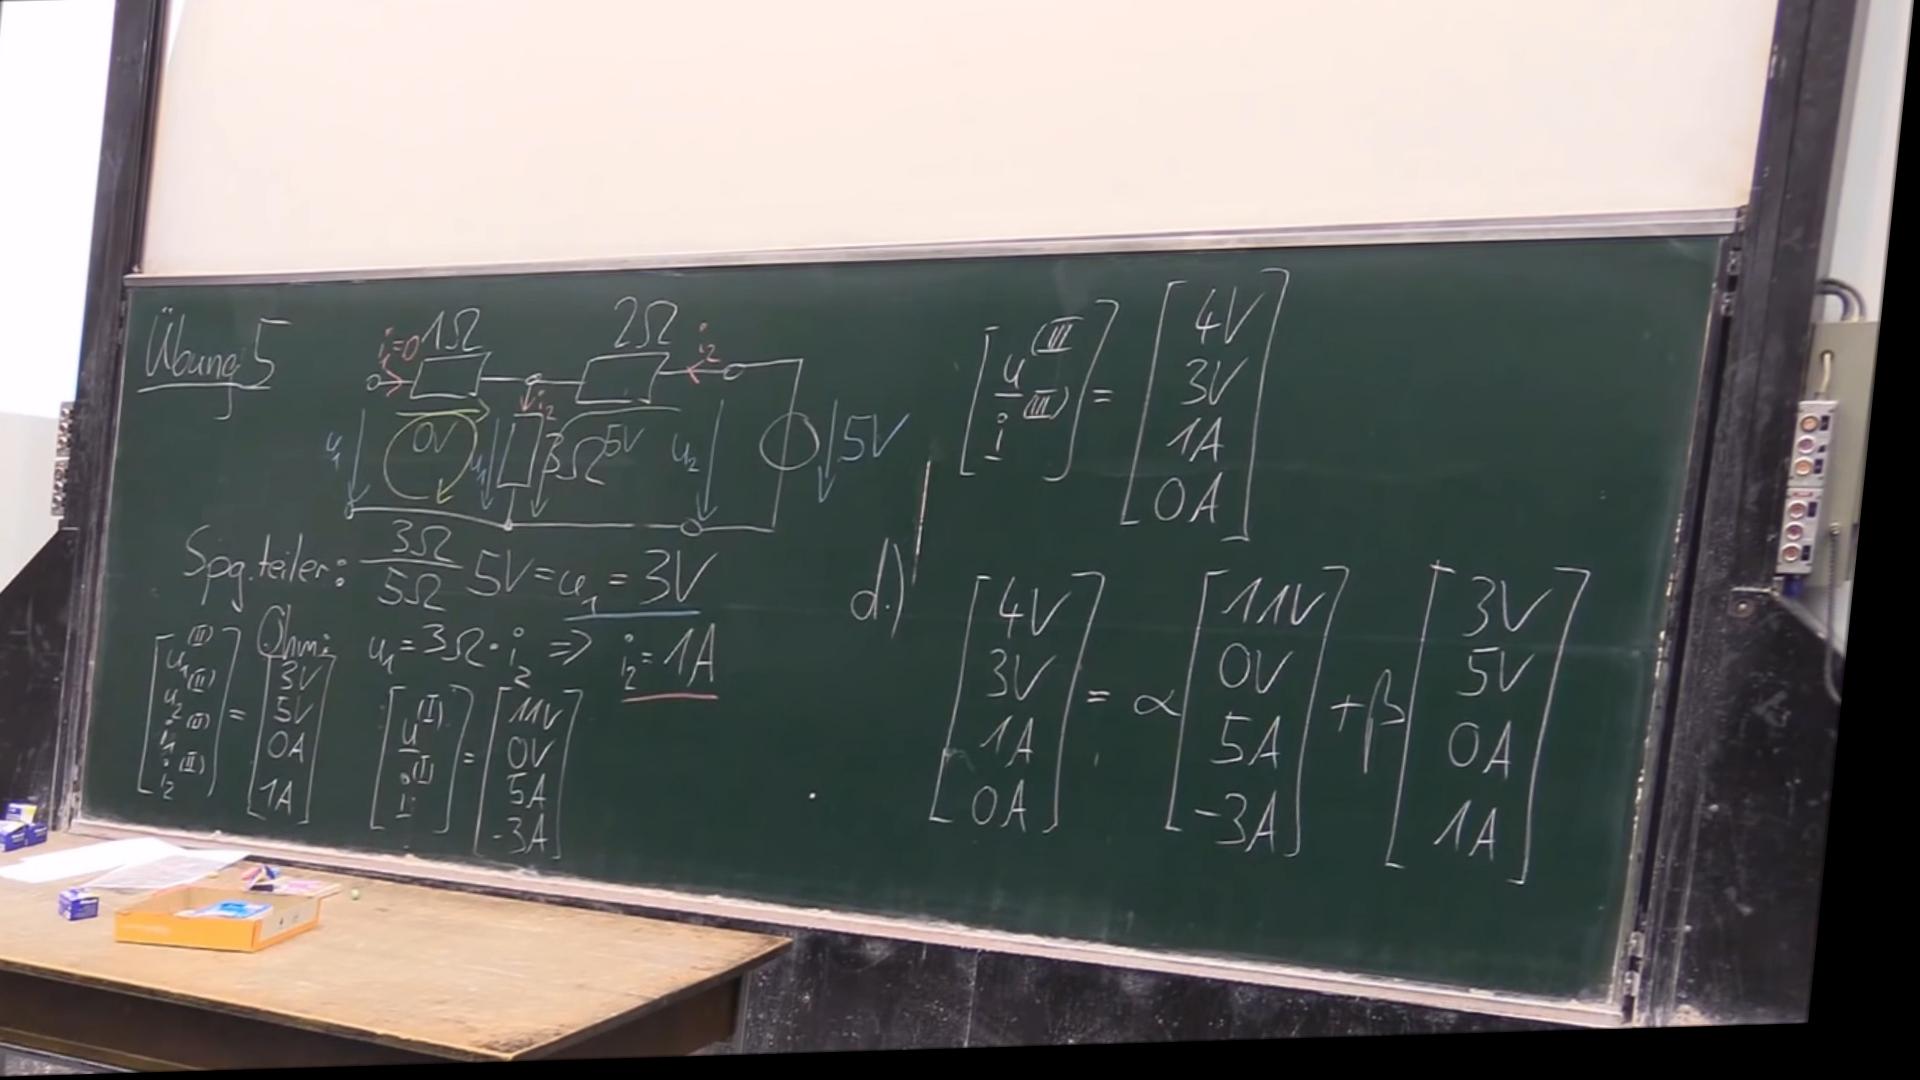 Übung 5
i₁=0 1Ω 2Ω i₂
i₂
u₁ 0V u₁ 3Ω 5V u₂ 5V
Spg.teiler: 3Ω/5Ω 5V = u₁ = 3V
Ohm: u₁ = 3Ω · i₂ => i₂ = 1A
[u₁^(II) u₂^(II) i₁^(II) i₂^(II)] = [3V 5V 0A 1A]
[u^(I) i^(I)] = [11V 0V 5A -3A]
[u^(III) i^(III)] = [4V 3V 1A 0A]
d.) [4V 3V 1A 0A] = α [11V 0V 5A -3A] + β [3V 5V 0A 1A]